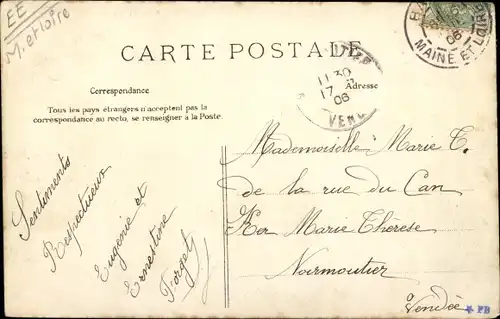 EE
M. et Loire
CARTE POSTALE
MAINE ET LOIRE
Correspondance
Adresse
11 30
17
06
VEN
Tous les pays étrangers n'acceptent pas la
correspondance au recto, se renseigner à la Poste.
Sentiments
Respectueux
Eugénie et
Ernestine
Forget
Mademoiselle Marie C.
de la rue du Can
Ker Marie Thérèse
Noirmoutier
Vendée
FB